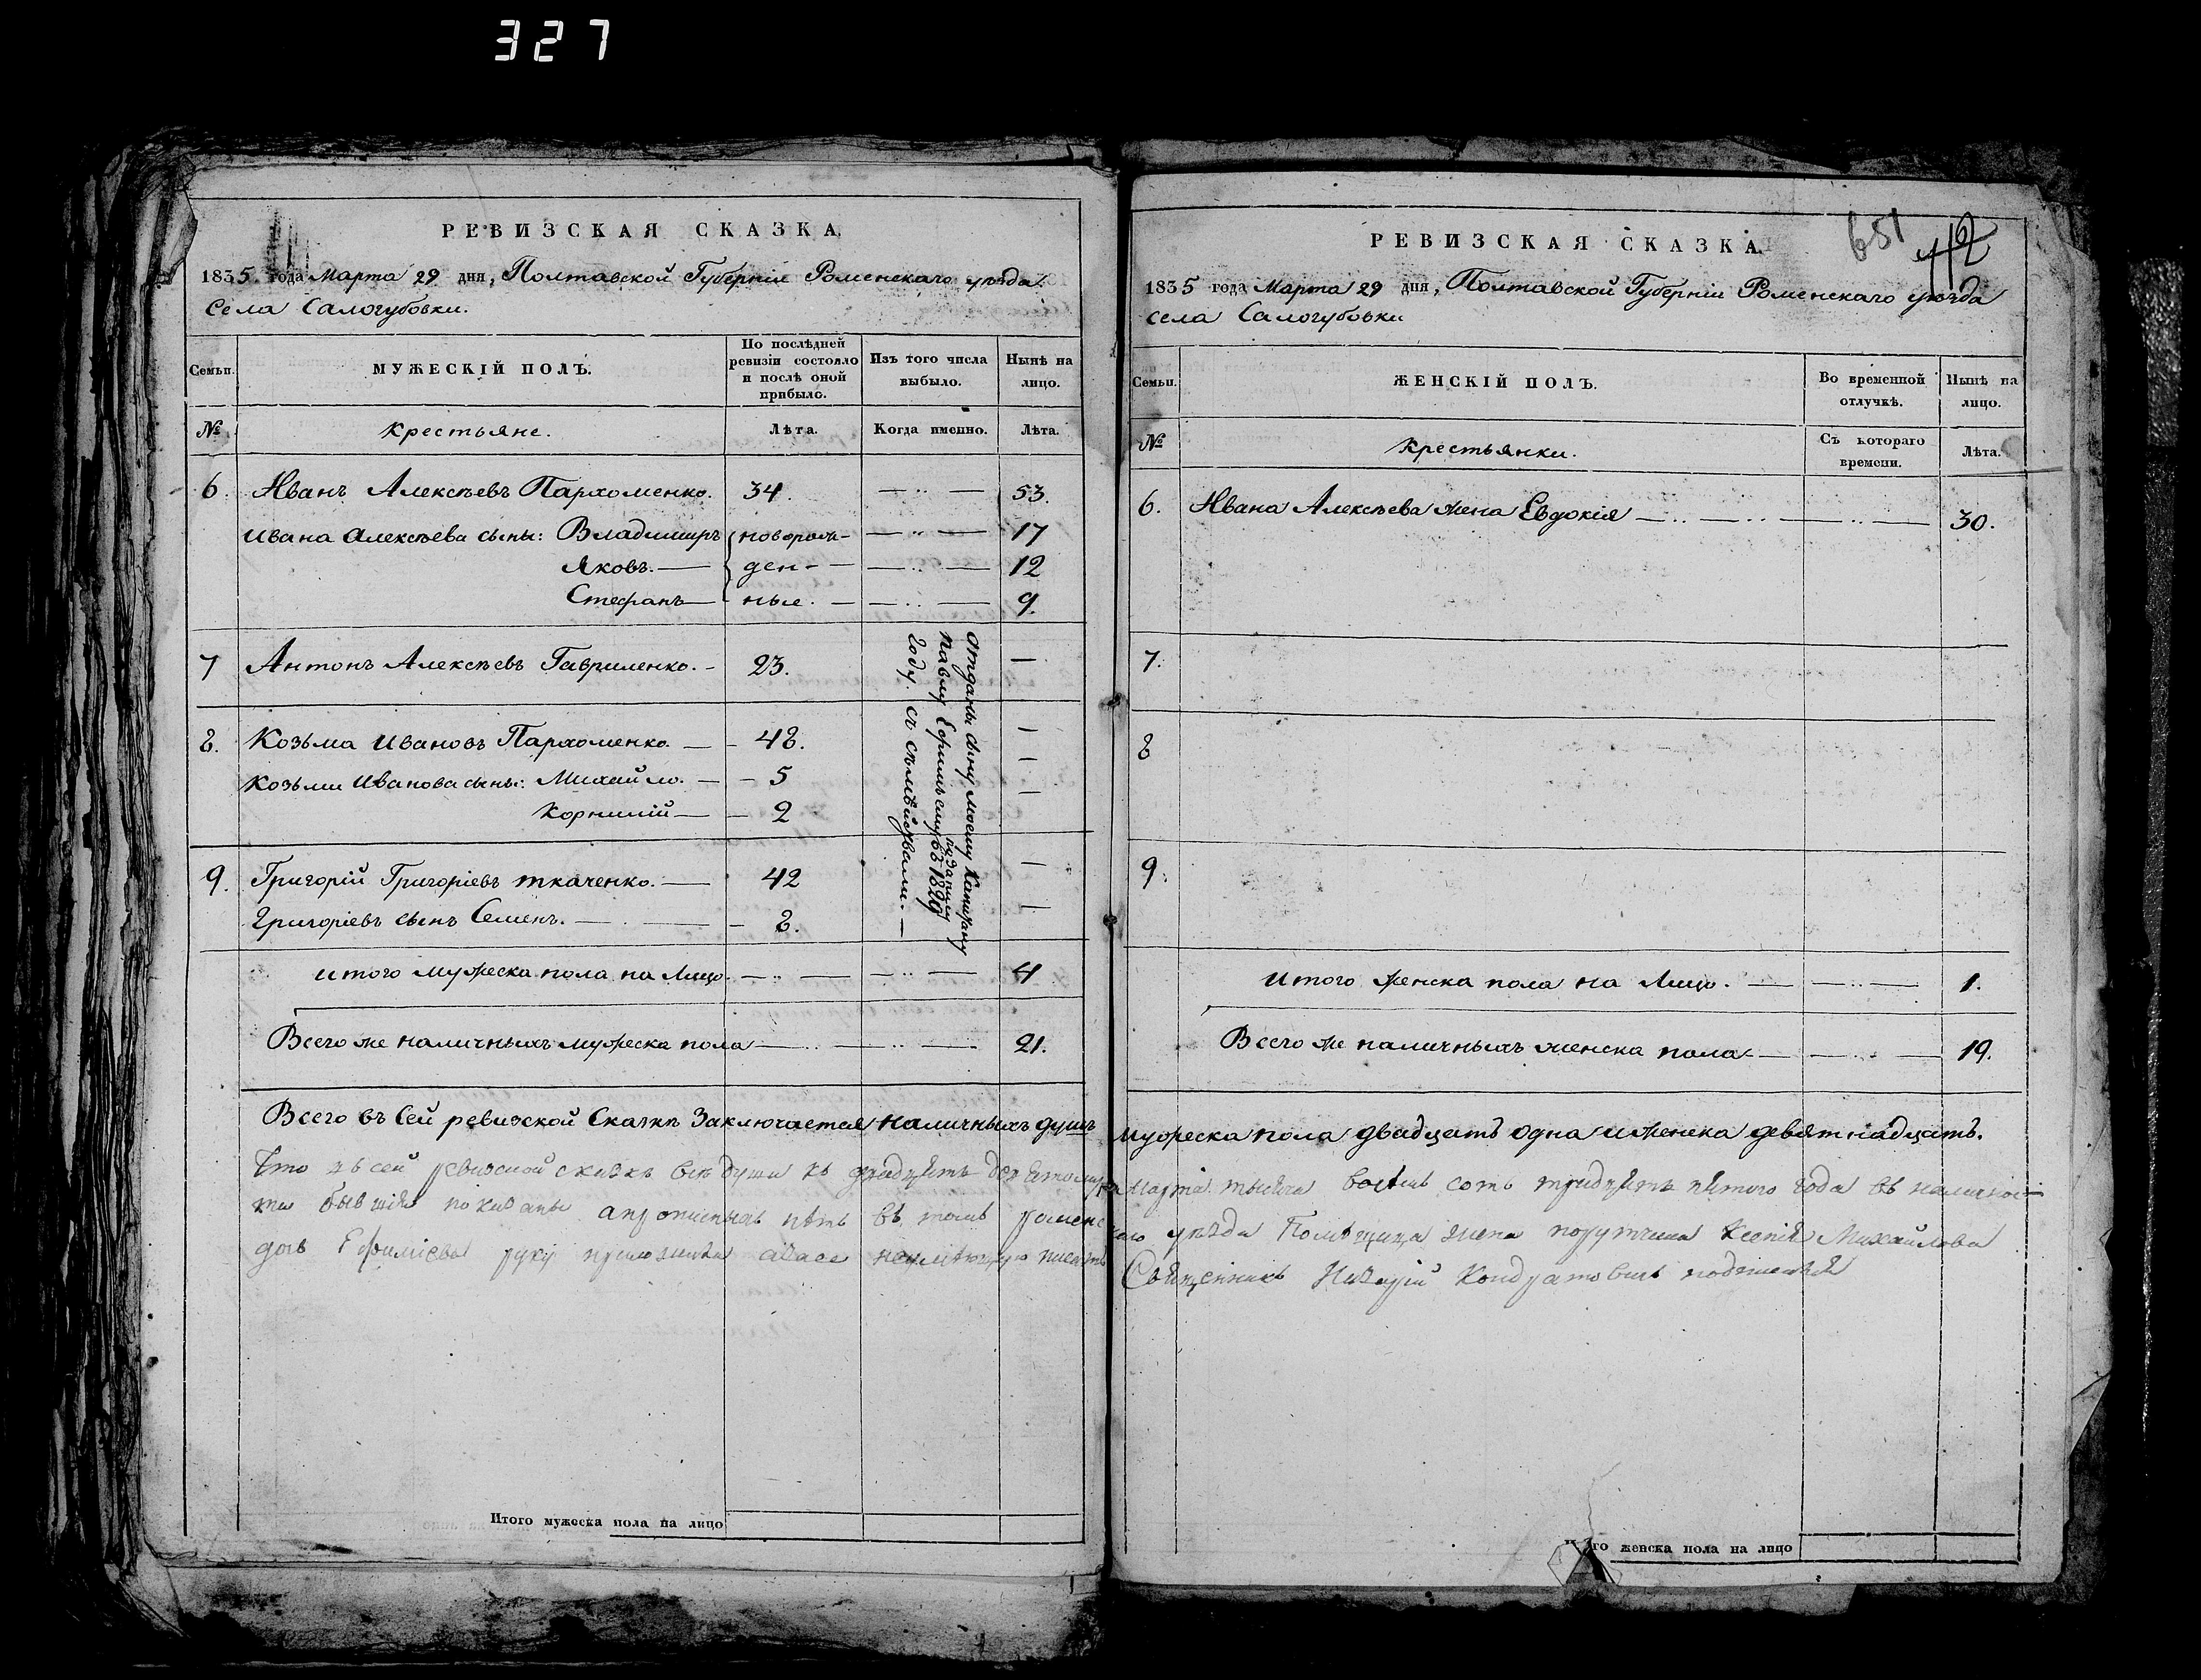 327
РЕВИЗСКАЯ СКАЗКА.
1835 года Марта 29 дня, Полтавской Губерніи Роменскаго уѣзда
села Салогубовки.
Семьи.
МУЖЕСКІЙ ПОЛЪ.
По послѣдней ревизіи состояло и послѣ оной прибыло.
Изъ того числа выбыло.
Нынѣ на лицо.
№
Крестьяне.
Лѣта.
Когда именно.
Лѣта.
6. Иванъ Алексѣевъ Пархоменко. 34. — 53.
Ивана Алексѣева сыны: Владимиръ новорож- — 17
Яковъ. — ден- — 12
Стефанъ — ные. — 9.
7 Антонъ Алексѣевъ Гавриленко. - 23. —
8. Козьма Ивановъ Пархоменко — 48. —
Козьми Иванова сыны: Михайло. — 5 —
Корнилій — 2 —
9. Григорій Григоріевъ Ткаченко. — 42 —
Григоріевъ сынъ Семенъ. — 8. —
отданы сыну моему Капитану
Павлу Ефимьеву въ 1829
году. съ семействами. —
итого мужеска пола на лицо. — 4
Всего же наличныхъ мужеска пола — 21.
РЕВИЗСКАЯ СКАЗКА.
651
42
1835 года Марта 29 дня, Полтавской Губерніи Роменскаго уѣзда
села Салогубовки
Семьи.
ЖЕНСКІЙ ПОЛЪ.
Во временной отлучкѣ.
Нынѣ на лицо.
№
Крестьянки.
Съ котораго времени.
Лѣта.
6. Ивана Алексѣева жена Евдокія — 30.
7.
8
9.
Итого женска пола на лицо. — 1.
Всего же наличныхъ женска пола — 19.
Всего въ сей ревизской Сказкѣ Заключается наличныхъ душъ мужеска пола двадцать одна и женска девятнадцать.
Что въ сей ревизской сказкѣ всѣ души къ двадцать девятому Марта тысяча восемь сотъ тридцять пятого года въ наличнос-
ти бывшія показаны а прописныхъ нѣтъ въ томъ роменскаго уѣзда Помѣщица жена порутчика Ксенія Михайлова
дочь Ефимієва руку приложила а вмѣсто неумѣющую писать Священникъ Кондратовичъ подписался
Итого мужеска пола на лицо
Итого женска пола на лицо